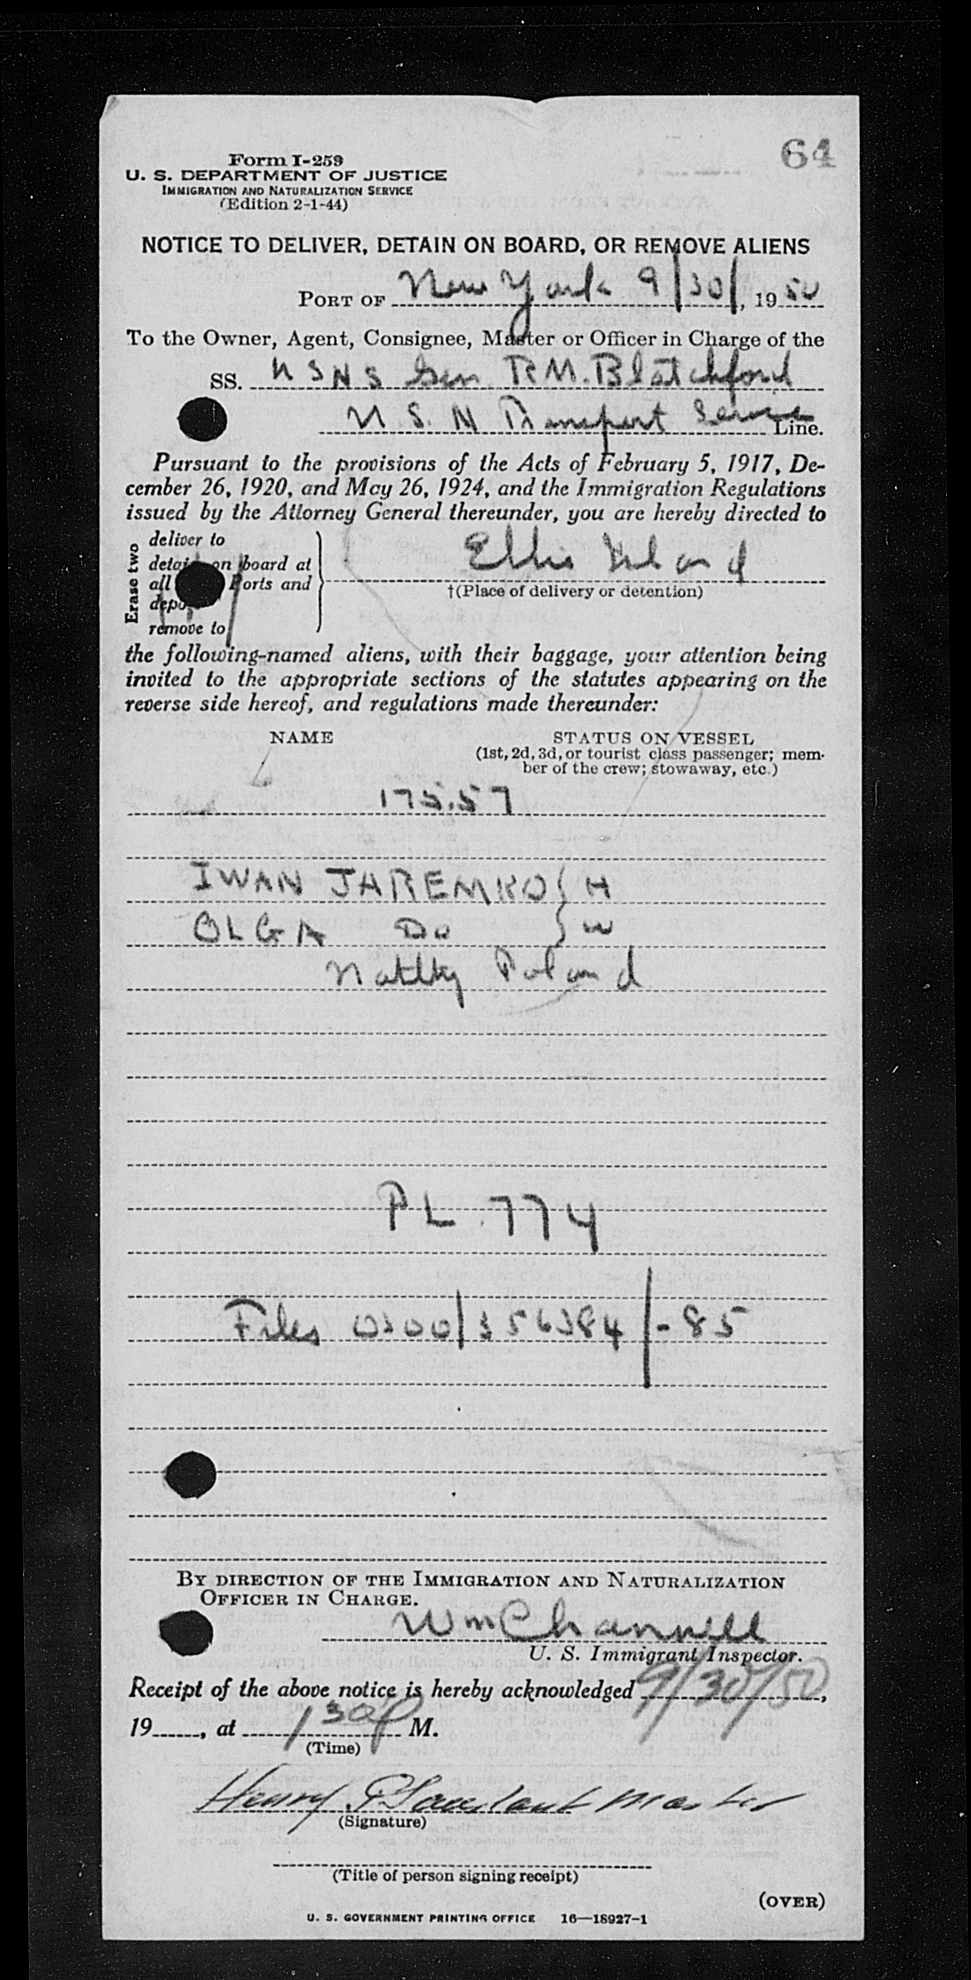 64
Form I-259
U. S. DEPARTMENT OF JUSTICE
IMMIGRATION AND NATURALIZATION SERVICE
(Edition 2-1-44)
NOTICE TO DELIVER, DETAIN ON BOARD, OR REMOVE ALIENS
PORT OF New York 9/30/, 1950
To the Owner, Agent, Consignee, Master or Officer in Charge of the
SS. USNS Gen R.M. Blatchford
U S. N Transport Service Line.
Pursuant to the provisions of the Acts of February 5, 1917, De-
cember 26, 1920, and May 26, 1924, and the Immigration Regulations
issued by the Attorney General thereunder, you are hereby directed to
Erase two
deliver to
detain on board at
all Ports and
remove to
Ellis Island
†(Place of delivery or detention)
the following-named aliens, with their baggage, your attention being
invited to the appropriate sections of the statutes appearing on the
reverse side hereof, and regulations made thereunder:
NAME STATUS ON VESSEL
(1st, 2d, 3d, or tourist class passenger; mem-
ber of the crew; stowaway, etc.)
175.57
IWAN JAREMKO } H
OLGA Do } W
Natlty Poland
PL 774
Files 0300/356384/-85
BY DIRECTION OF THE IMMIGRATION AND NATURALIZATION
OFFICER IN CHARGE.
U. S. Immigrant Inspector.
Receipt of the above notice is hereby acknowledged 9/30/50,
19, at 130 P M.
(Time)
Henry Master
(Signature)
(Title of person signing receipt)
(OVER)
U. S. GOVERNMENT PRINTING OFFICE 16—18927-1